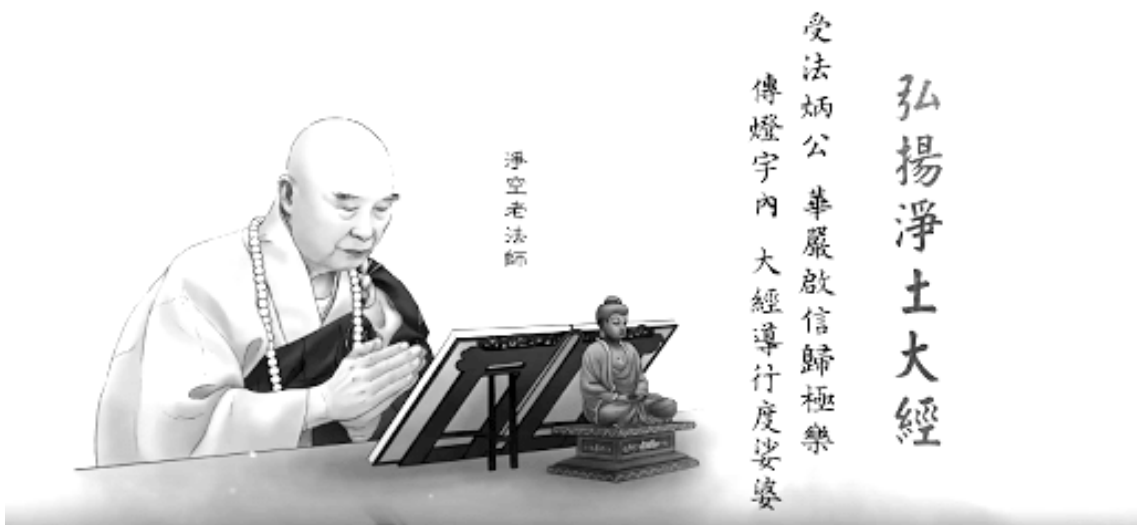 弘揚淨土大經
受法炳公 華嚴啟信歸極樂
傳燈宇內 大經導行度娑婆
淨空老法師